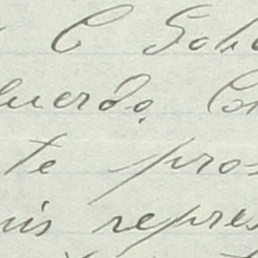 C Sol
cuerdo. Co
te pros
uis repres